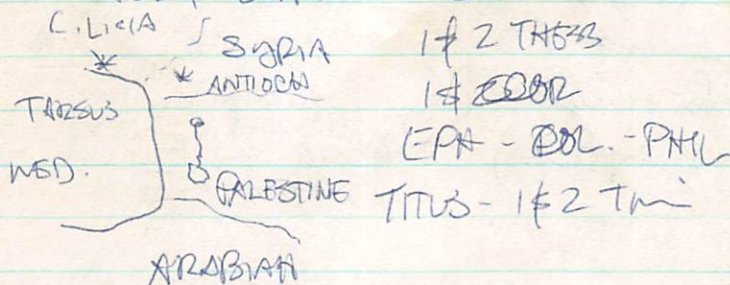 CiLiciA
SYRIA
* ANTIOCH
TARSUS
MED.
PALESTINE
ARABIAH
1 & 2 THESS
1 & 2 COR
EPH - COL. - PHIL
TITUS - 1 & 2 Tim